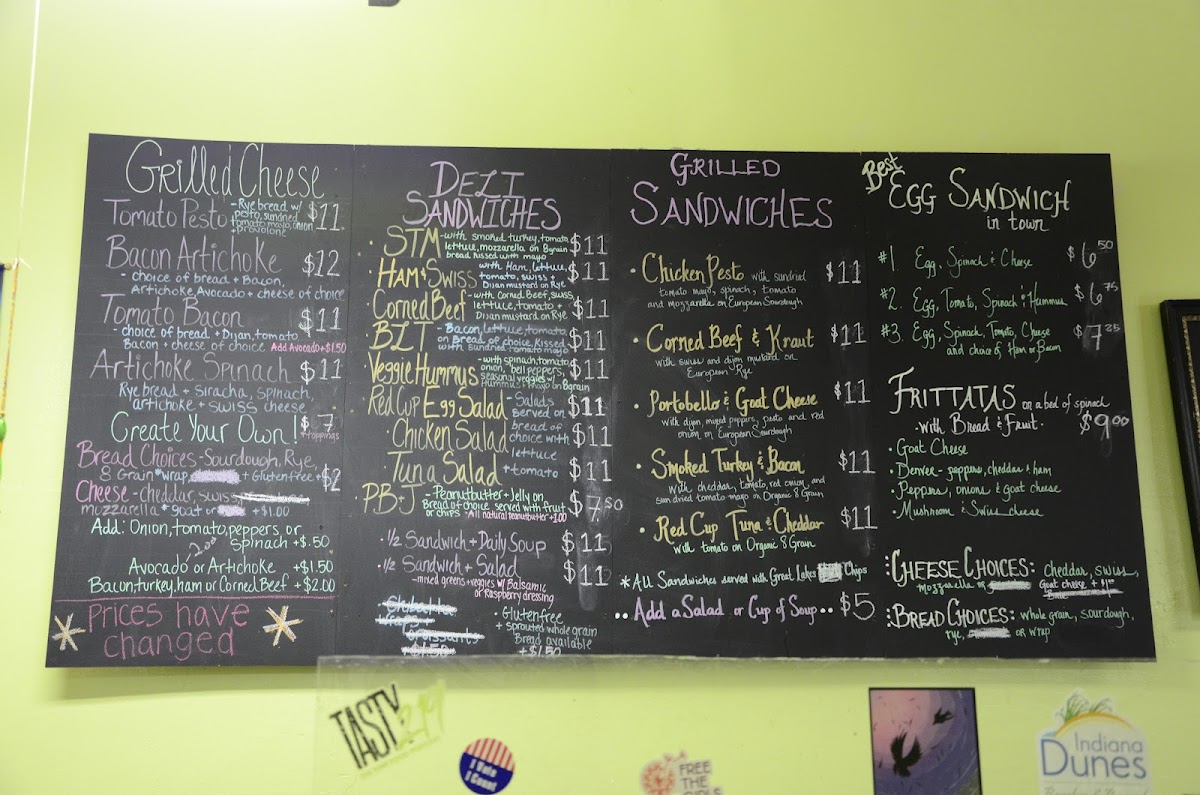 Grilled Cheese
Tomato Pesto - Rye bread w/ $11
pesto, sundried
tomato mayo, onion
+ provolone
Bacon Artichoke $12
- choice of bread + Bacon,
Artichoke, Avocado + cheese of choice
Tomato Bacon $11
- choice of bread + Dijan, tomato
Bacon + cheese of choice Add Avocado +$1.50
Artichoke Spinach $11
Rye bread + Siracha, spinach,
artichoke + swiss cheese
Create Your Own! $7
+toppings
Bread Choices - Sourdough, Rye,
8 Grain *wrap, + Glutenfree +$2
Cheese - cheddar, swiss
mozzarella *goat or +$1.00
Add: Onion, tomato, peppers, or
Spinach +$.50
2.00
Avocado or Artichoke +$1.50
Bacon, turkey, ham or Corned Beef +$2.00
Prices have
changed
DELI
SANDWICHES
STM - with smoked turkey, tomato, $11
lettuce, mozzarella on 8grain
bread kissed with mayo
Ham & Swiss with Ham, lettuce, $11
tomato, swiss +
Dijan mustard on Rye
Corned Beef - with Corned Beef, swiss, $11
lettuce, tomato +
Dijan mustard on Rye
BLT - Bacon, lettuce, tomato, $11
on Bread of choice, kissed
with sundried tomato mayo
Veggie Hummus - with spinach, tomato, $11
onion, bell peppers,
seasonal veggies w/
Hummus + mayo on 8grain
Red Cup Egg Salad - Salads $11
Served on
Chicken Salad bread of $11
choice with
Tuna Salad lettuce $11
+ tomato
PB+J - Peanutbutter + Jelly on $7.50
Bread of choice served with fruit
or chips - All natural peanutbutter +1.00
· 1/2 Sandwich + Daily Soup $11
· 1/2 Sandwich + Salad $11
- mixed greens + veggies w/ Balsamic
or Raspberry dressing
wraps
Croissants
· Glutenfree
+ Sprouted whole grain
Bread available
+$1.50
GRILLED
SANDWICHES
· Chicken Pesto with sundried $11
tomato mayo, spinach, tomato
and mozzarella on European Sourdough
· Corned Beef & Kraut $11
with swiss and dijon mustard on
European Rye
· Portobello & Goat Cheese $11
with dijon, mixed peppers, pesto and red
onion on European Sourdough
· Smoked Turkey & Bacon $11
with cheddar, tomato, red onion, and
sun dried tomato mayo on Organic 8 Grain
· Red Cup Tuna & Cheddar $11
with tomato on Organic 8 Grain
*All Sandwiches served with Great Lakes Chips
.. Add a Salad or Cup of Soup .. $5
Best
EGG SANDWICH
in town
#1 Egg, Spinach & Cheese $6.50
#2. Egg, Tomato, Spinach & Hummus $6.75
#3. Egg, Spinach, Tomato, Cheese $7.25
and choice of Ham or Bacon
FRITTATAS on a bed of spinach
- with Bread & Fruit · $9.00
· Goat Cheese
· Denver - peppers, cheddar & ham
· Peppers, onions & goat cheese
· Mushroom & Swiss cheese
:CHEESE CHOICES: cheddar, swiss,
mozzarella or Goat cheese + $1.00
:BREAD CHOICES: whole grain, sourdough,
rye, or wrap
TASTY
219
I Vote
I Count
FREE
THE
Indiana
Dunes